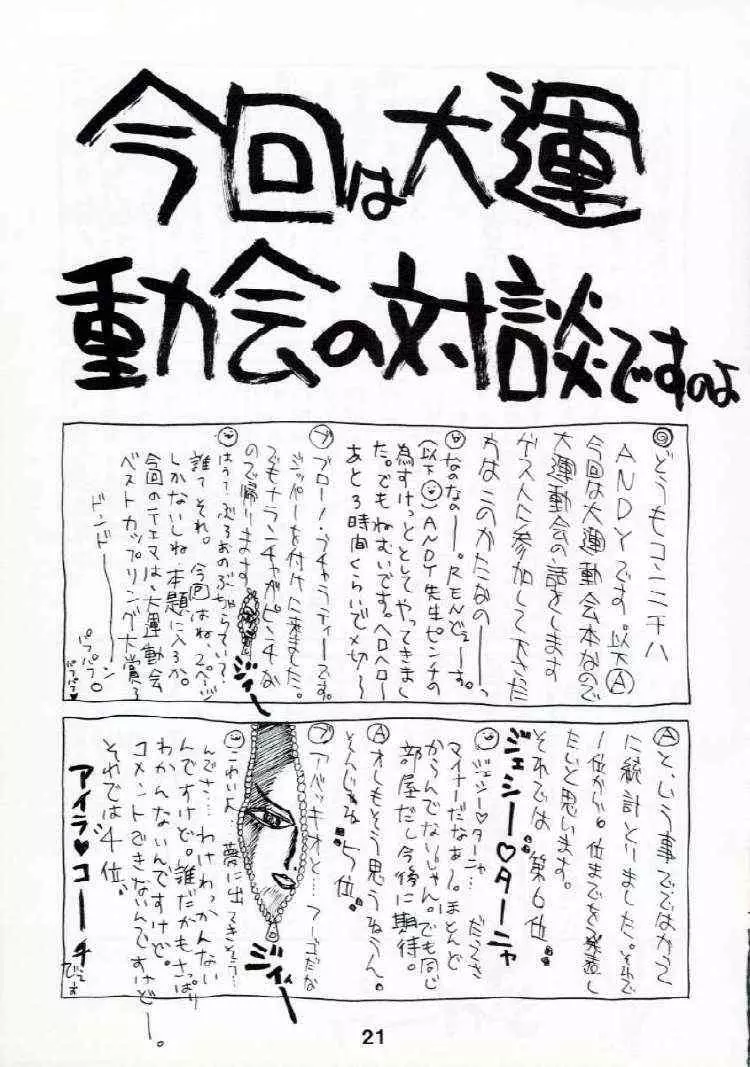 今回は大運
動会の対談ですのよ
Ⓐどうもコンニチハ
ANDYです。以下Ⓐ
今回は大運動会本なので
大運動会の話をします
ゲストに参加して下さった
方はこのかたなのーーー、
なのなのー。RENどぇーす。
(以下)ANDY先生ピンチの
為すけっととしてやってきまし
た。でもねむいです。ヘロヘロ〜
あと3時間くらいで〆切〜
ブブロー!ブチャラティーズです。
ジッパーを付けに来ました。
でもナランチャがピンチな
ので帰ります。
ジィーー
はうて?ぶろおのぶちゃらてい?
誰てそれ。今回はね、2ページ
しかないしね、本題に入ろか。
今回のテェマは、大運動会
ベストカップリング大賞〜
ドンドーーーン
パフパフ〇
パフパフ♥
Ⓐという事でではかって
に統計とりました。それで
1位から6位までを発表し
たいと思います。
それでは第6位
ジェシー♡ターニャ
ジェシー♡ターニャ…だうえさ
マイナーだなぁー。ほとんど
からんでないじゃん。でも同じ
部屋だし今後に期待。
Ⓐオレもそう思うねうん。
そんじゃあ5位。
ブアバッキオと…フーゴだな
こわいよ 夢に出てきそう…
ジィィー
んでさ…わけわっかんない
んですけど。誰だがもさっぱり
わかんないんですけど。
コメントできないんですけどー。
それでは4位、
アイラ♥コーチ
でぇす
21